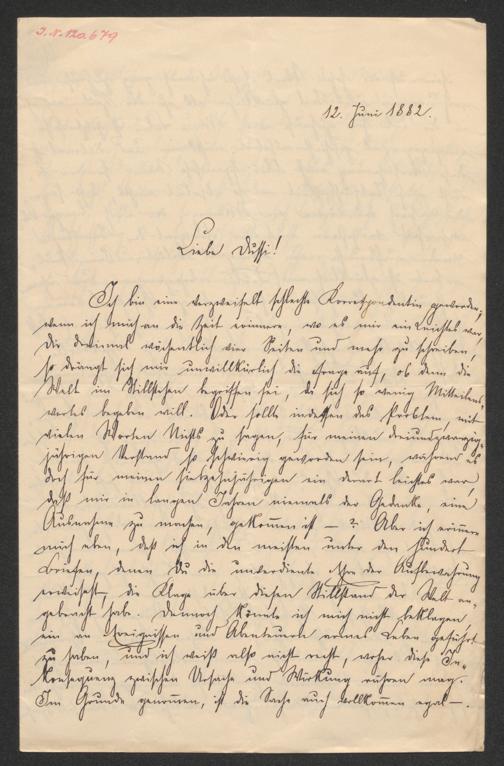 I.N. 120.679
12. Juni 1882.
Liebe Dussi!
Ich bin eine verzweifelt schlechte Korrespondentin geworden;
wenn ich mich an die Zeit erinnere, wo es mir ein Leichtes war,
Dir dreimal wöchentlich vier Seiten und mehr zu schreiben,
so drängt sich mir unwillkürlich die Frage auf, ob denn die
Welt im Stillstehen begriffen sei, da sich so wenig Mitteilens-
wertes begeben will. Oder sollte indessen das Problem, mit
vielen Worten Nichts zu sagen, für meinen dreiundzwanzig-
jährigen Verstand so schwierig geworden sein, während es
doch für meinen siebzehnjährigen ein derart leichtes war,
daß mir in langen Jahren niemals der Gedanke, eine
Ausnahme zu machen, gekommen ist — ? Aber ich erinnere
mich eben, daß ich in den meisten unter den hundert
Briefen, denen Du die unverdiente Ehre der Aufbewahrung
erwiesest, die Klage über diesen Stillstand der Welt an-
gebracht hab. Dennoch könnte ich mich nicht beklagen,
ein an Ereignissen und Abenteuern armes Leben geführt
zu haben, und ich weiß also nicht recht, woher diese In-
konsequenz zwischen Ursache und Wirkung rühren mag.
Im Grunde genommen, ist die Sache auch vollkommen egal —.